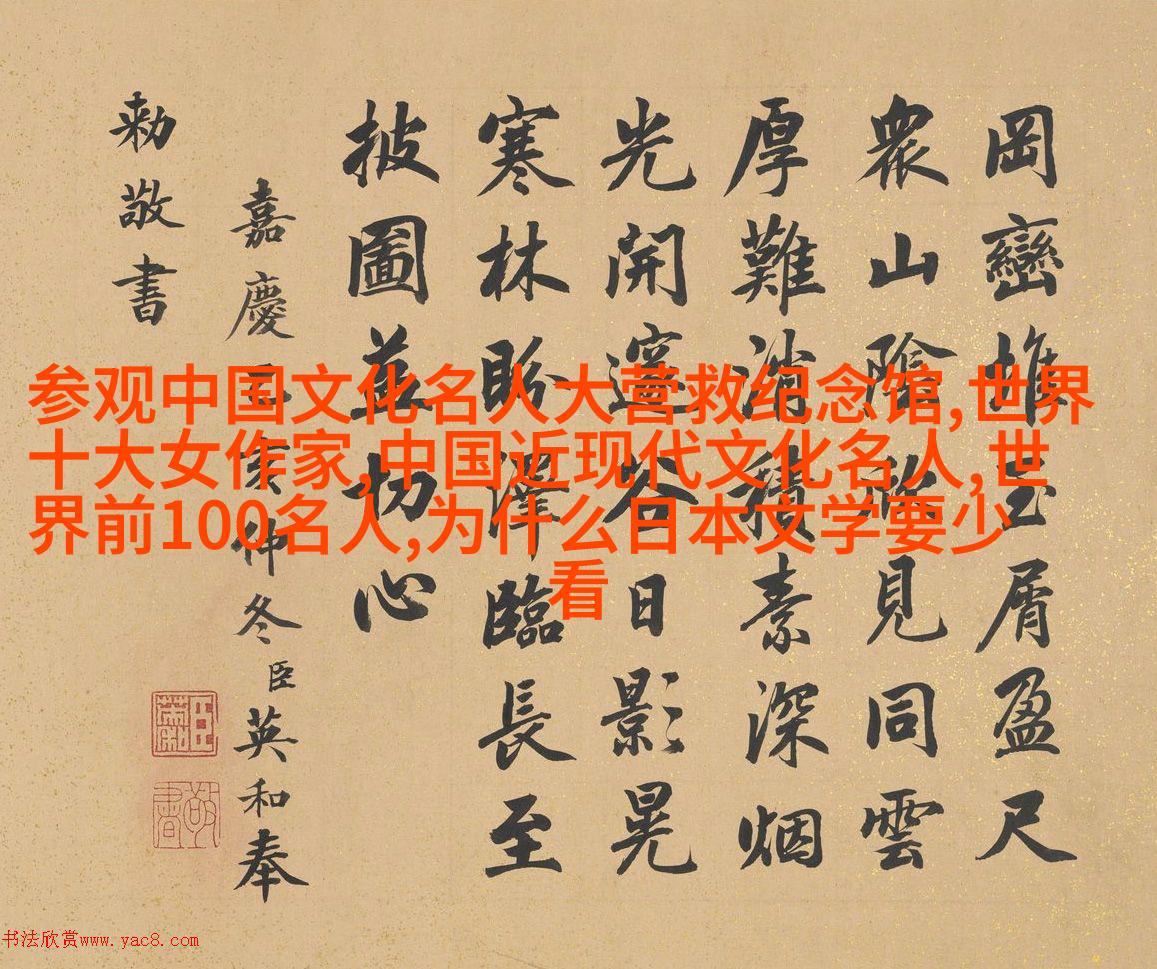 岡巒玉屑盈尺
衆山陰見同雲
厚難消積素深烟
光開邃谷日影晃
寒林盼澤臨長至
披圖切心
嘉慶乙亥仲冬臣英和奉
勑敬書
参观中国文化名人大营救纪念馆,世界
十大女作家,中国近现代文化名人,世
界前100名人,为什么日本文学要少
看
书法欣赏www.yac8.com